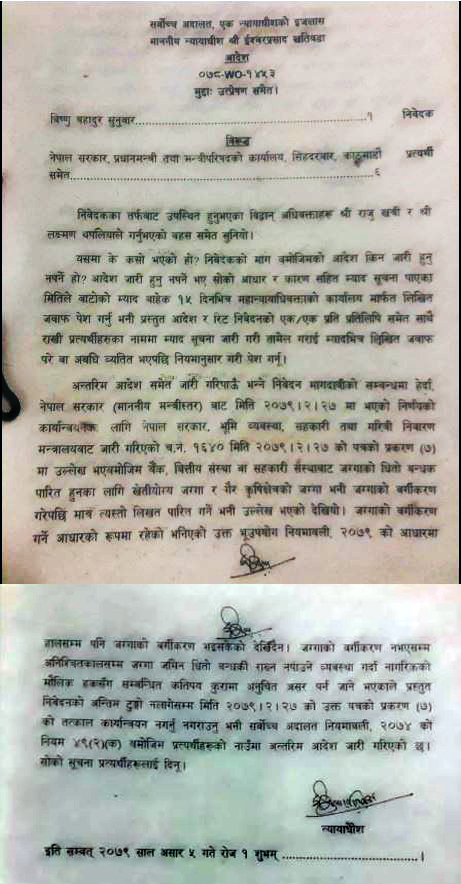 सर्वोच्च अदालत, एक न्यायाधीशको इजलास
माननीय न्यायाधीश श्री ईश्वरप्रसाद खतिवडा
आदेश
०७८-WO-१४५३
मुद्दाः उत्प्रेषण समेत।
विष्णु बहादुर सुनुवार.................................................................१ निवेदक
विरुद्ध
नेपाल सरकार, प्रधानमन्त्री तथा मन्त्रीपरिषदको कार्यालय, सिंहदरबार, काठमाडौं प्रत्यर्थी
समेत.................................................................६
निवेदकका तर्फबाट उपस्थित हुनुभएका विद्वान् अधिवक्ताहरू श्री राजु खत्री र श्री
लक्ष्मण थपलियाले गर्नुभएको बहस समेत सुनियो।
यसमा के कसो भएको हो? निवेदकको माग बमोजिमको आदेश किन जारी हुनु
नपर्ने हो? आदेश जारी हुनु नपर्ने भए सोको आधार र कारण सहित म्याद सूचना पाएका
मितिले बाटोको म्याद बाहेक १५ दिनभित्र महान्यायाधिवक्ताको कार्यालय मार्फत लिखित
जवाफ पेश गर्नु भनी प्रस्तुत आदेश र रिट निवेदनको एक/एक प्रति प्रतिलिपि समेत साथै
राखी प्रत्यर्थीहरुका नाममा म्याद सूचना जारी गरी तामेल गराई म्यादभित्र लिखित जवाफ
परे वा अवधि व्यतित भएपछि नियमानुसार गरी पेश गर्नु।
अन्तरिम आदेश समेत जारी गरिपाऊँ भन्ने निवेदन मागदाबीको सम्बन्धमा हेर्दा,
नेपाल सरकार (माननीय मन्त्रीस्तर) बाट मिति २०७९।२।२७ मा भएको निर्णयको
कार्यान्वयनक लागि नेपाल सरकार, भूमि व्यवस्था, सहकारी तथा गरिवी निवारण
मन्त्रालयबाट जारी गरिएको च.नं. १६४० मिति २०७९।२।२७ को पत्रको प्रकरण (७)
मा उल्लेख भएबमोजिम बैंक, वित्तीय संस्था वा सहकारी संस्थाबाट जग्गाको धितो बन्धक
पारित हुनका लागि खेतीयोग्य जग्गा र गैर कृषिक्षेत्रको जग्गा भनी जग्गाको वर्गीकरण
गरेपछि मात्र त्यस्तो लिखत पारित गर्ने भनी उल्लेख भएको देखियो। जग्गाको वर्गीकरण
गर्ने आधारको रूपमा रहेको भनिएको उक्त भूउपयोग नियमावली, २०७९ को आधारमा
हालसम्म पनि जग्गाको वर्गीकरण भइसकेको देखिँदैन। जग्गाको वर्गीकरण नभएसम्म
अनिश्चितकालसम्म जग्गा जमिन धितो बन्धकी राख्न नपाउने व्यवस्था गर्दा नागरिकको
मौलिक हकसँग सम्बन्धित कतिपय कुरामा अनुचित असर पर्न जाने भएकाले प्रस्तुत
निवेदनको अन्तिम टुङ्गो नलागेसम्म मिति २०७९।२।२७ को उक्त पत्रको प्रकरण (७)
को तत्काल कार्यान्वयन नगर्नु नगराउनु भनी सर्वोच्च अदालत नियमावली, २०७४ को
नियम ४९(२)(क) बमोजिम प्रत्यर्थीहरूको नाउँमा अन्तरिम आदेश जारी गरिएको छ।
सोको सूचना प्रत्यर्थीहरूलाई दिनू।
न्यायाधीश
इति सम्बत् २०७९ साल असार ५ गते रोज १ शुभम् .......................................।